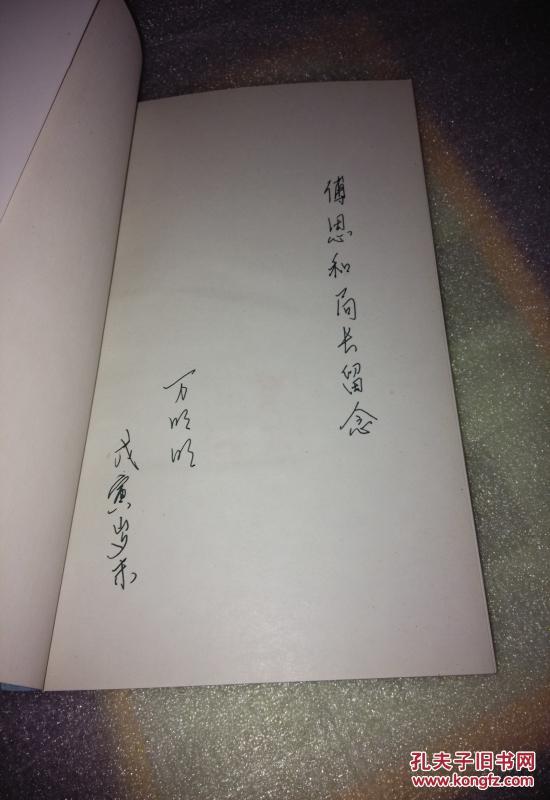 傅恩和局长留念
万明明
戊寅岁末
孔夫子旧书网
www.kongfz.com